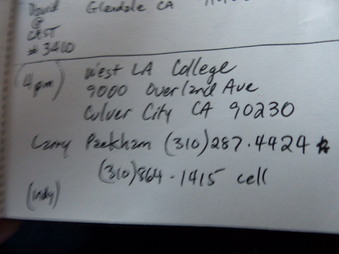 David Glendale CA
@
CAST
# 3410
4pm) West LA College
9000 Overland Ave
Culver City CA 90230
Larry Packham (310) 287.4424 *
(310) 864-1415 cell
(indy)